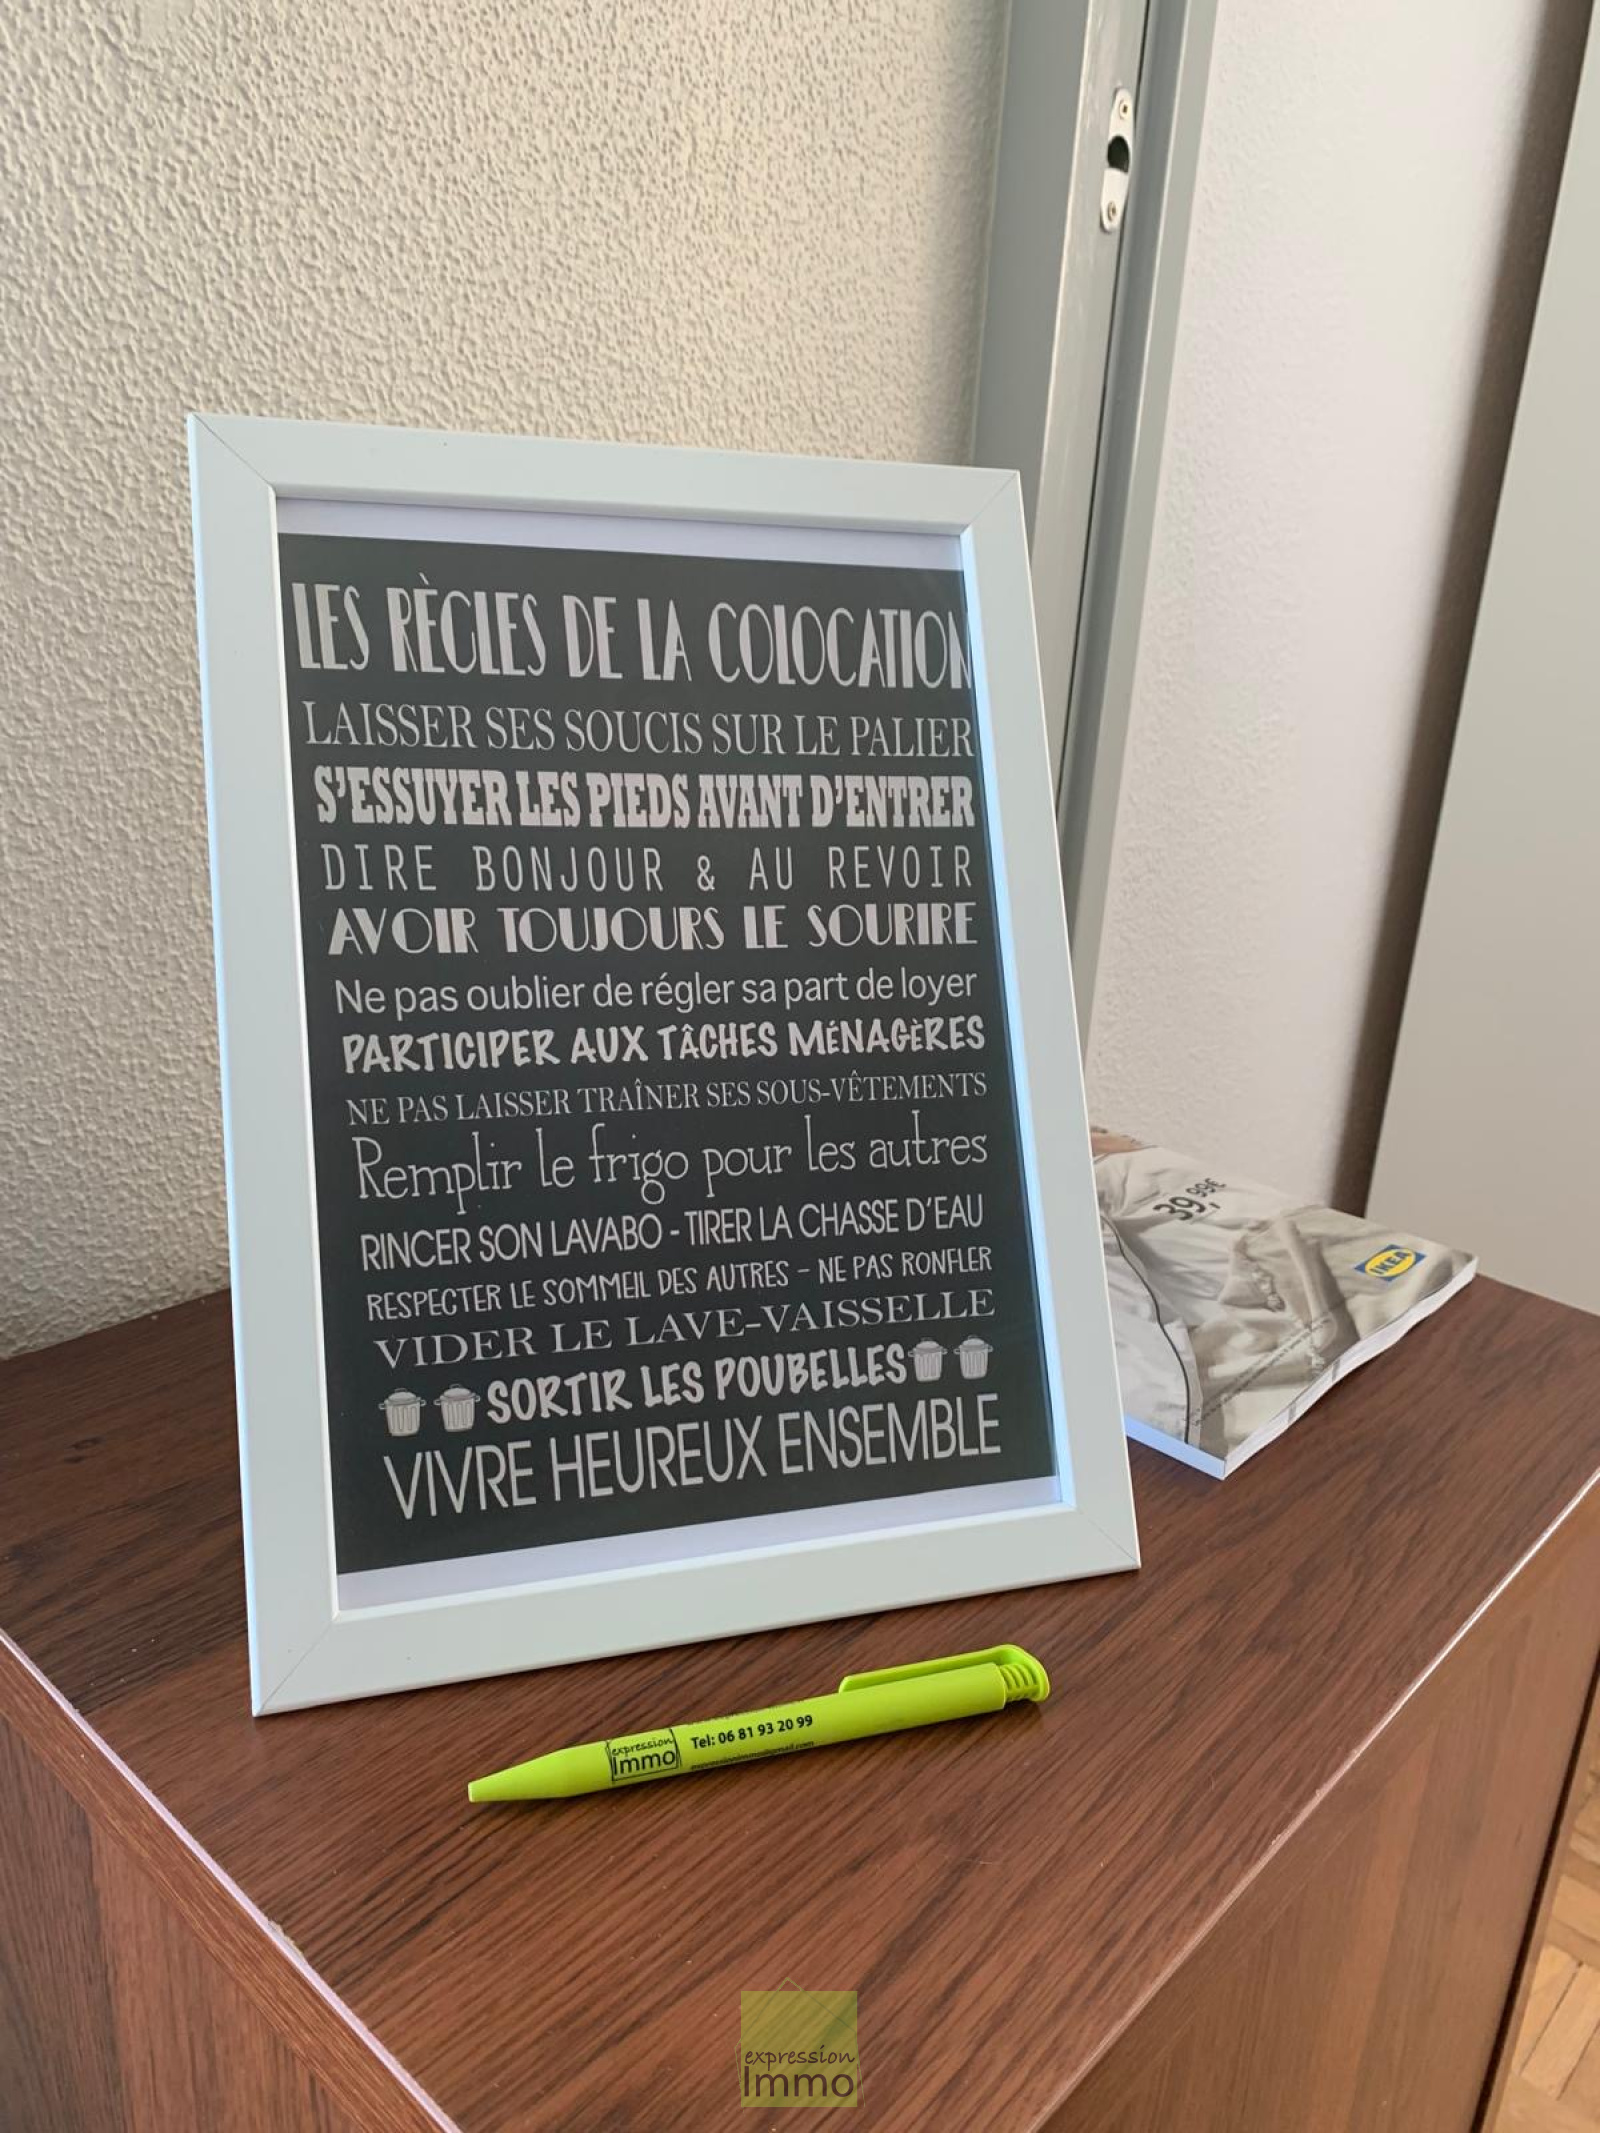 LES RÈGLES DE LA COLOCATION
LAISSER SES SOUCIS SUR LE PALIER
S'ESSUYER LES PIEDS AVANT D'ENTRER
DIRE BONJOUR & AU REVOIR
AVOIR TOUJOURS LE SOURIRE
Ne pas oublier de régler sa part de loyer
PARTICIPER AUX TÂCHES MÉNAGÈRES
NE PAS LAISSER TRAÎNER SES SOUS-VÊTEMENTS
Remplir le frigo pour les autres
RINCER SON LAVABO - TIRER LA CHASSE D'EAU
RESPECTER LE SOMMEIL DES AUTRES - NE PAS RONFLER
VIDER LE LAVE-VAISSELLE
SORTIR LES POUBELLES
VIVRE HEUREUX ENSEMBLE
39,99€
IKEA
expression
Immo
Tel: 06 81 93 20 99
expression
Immo